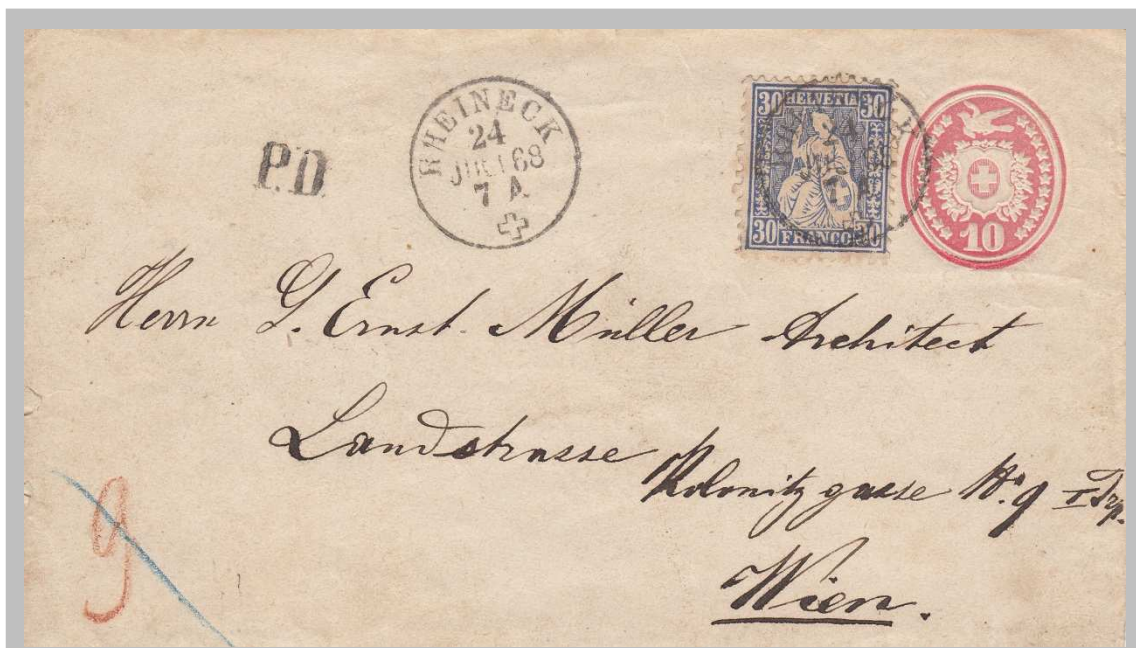 P.D.
RHEINECK
24
JULI 68
7 A
30 HELVETIA 30
30 FRANCO 30
10
Herrn G. Ernst Müller Architect
Landstrasse
Kolonitzgasse No. 9 I
Wien.
9